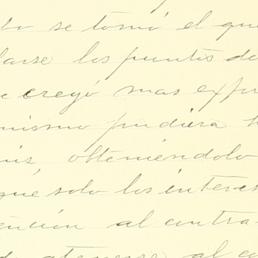 do se tomó el que
larse los puntos de
e creyó mas expe
mismo pudiera h
is, obteniéndolo
que solo los interes
ención al contra-
atenerse al co